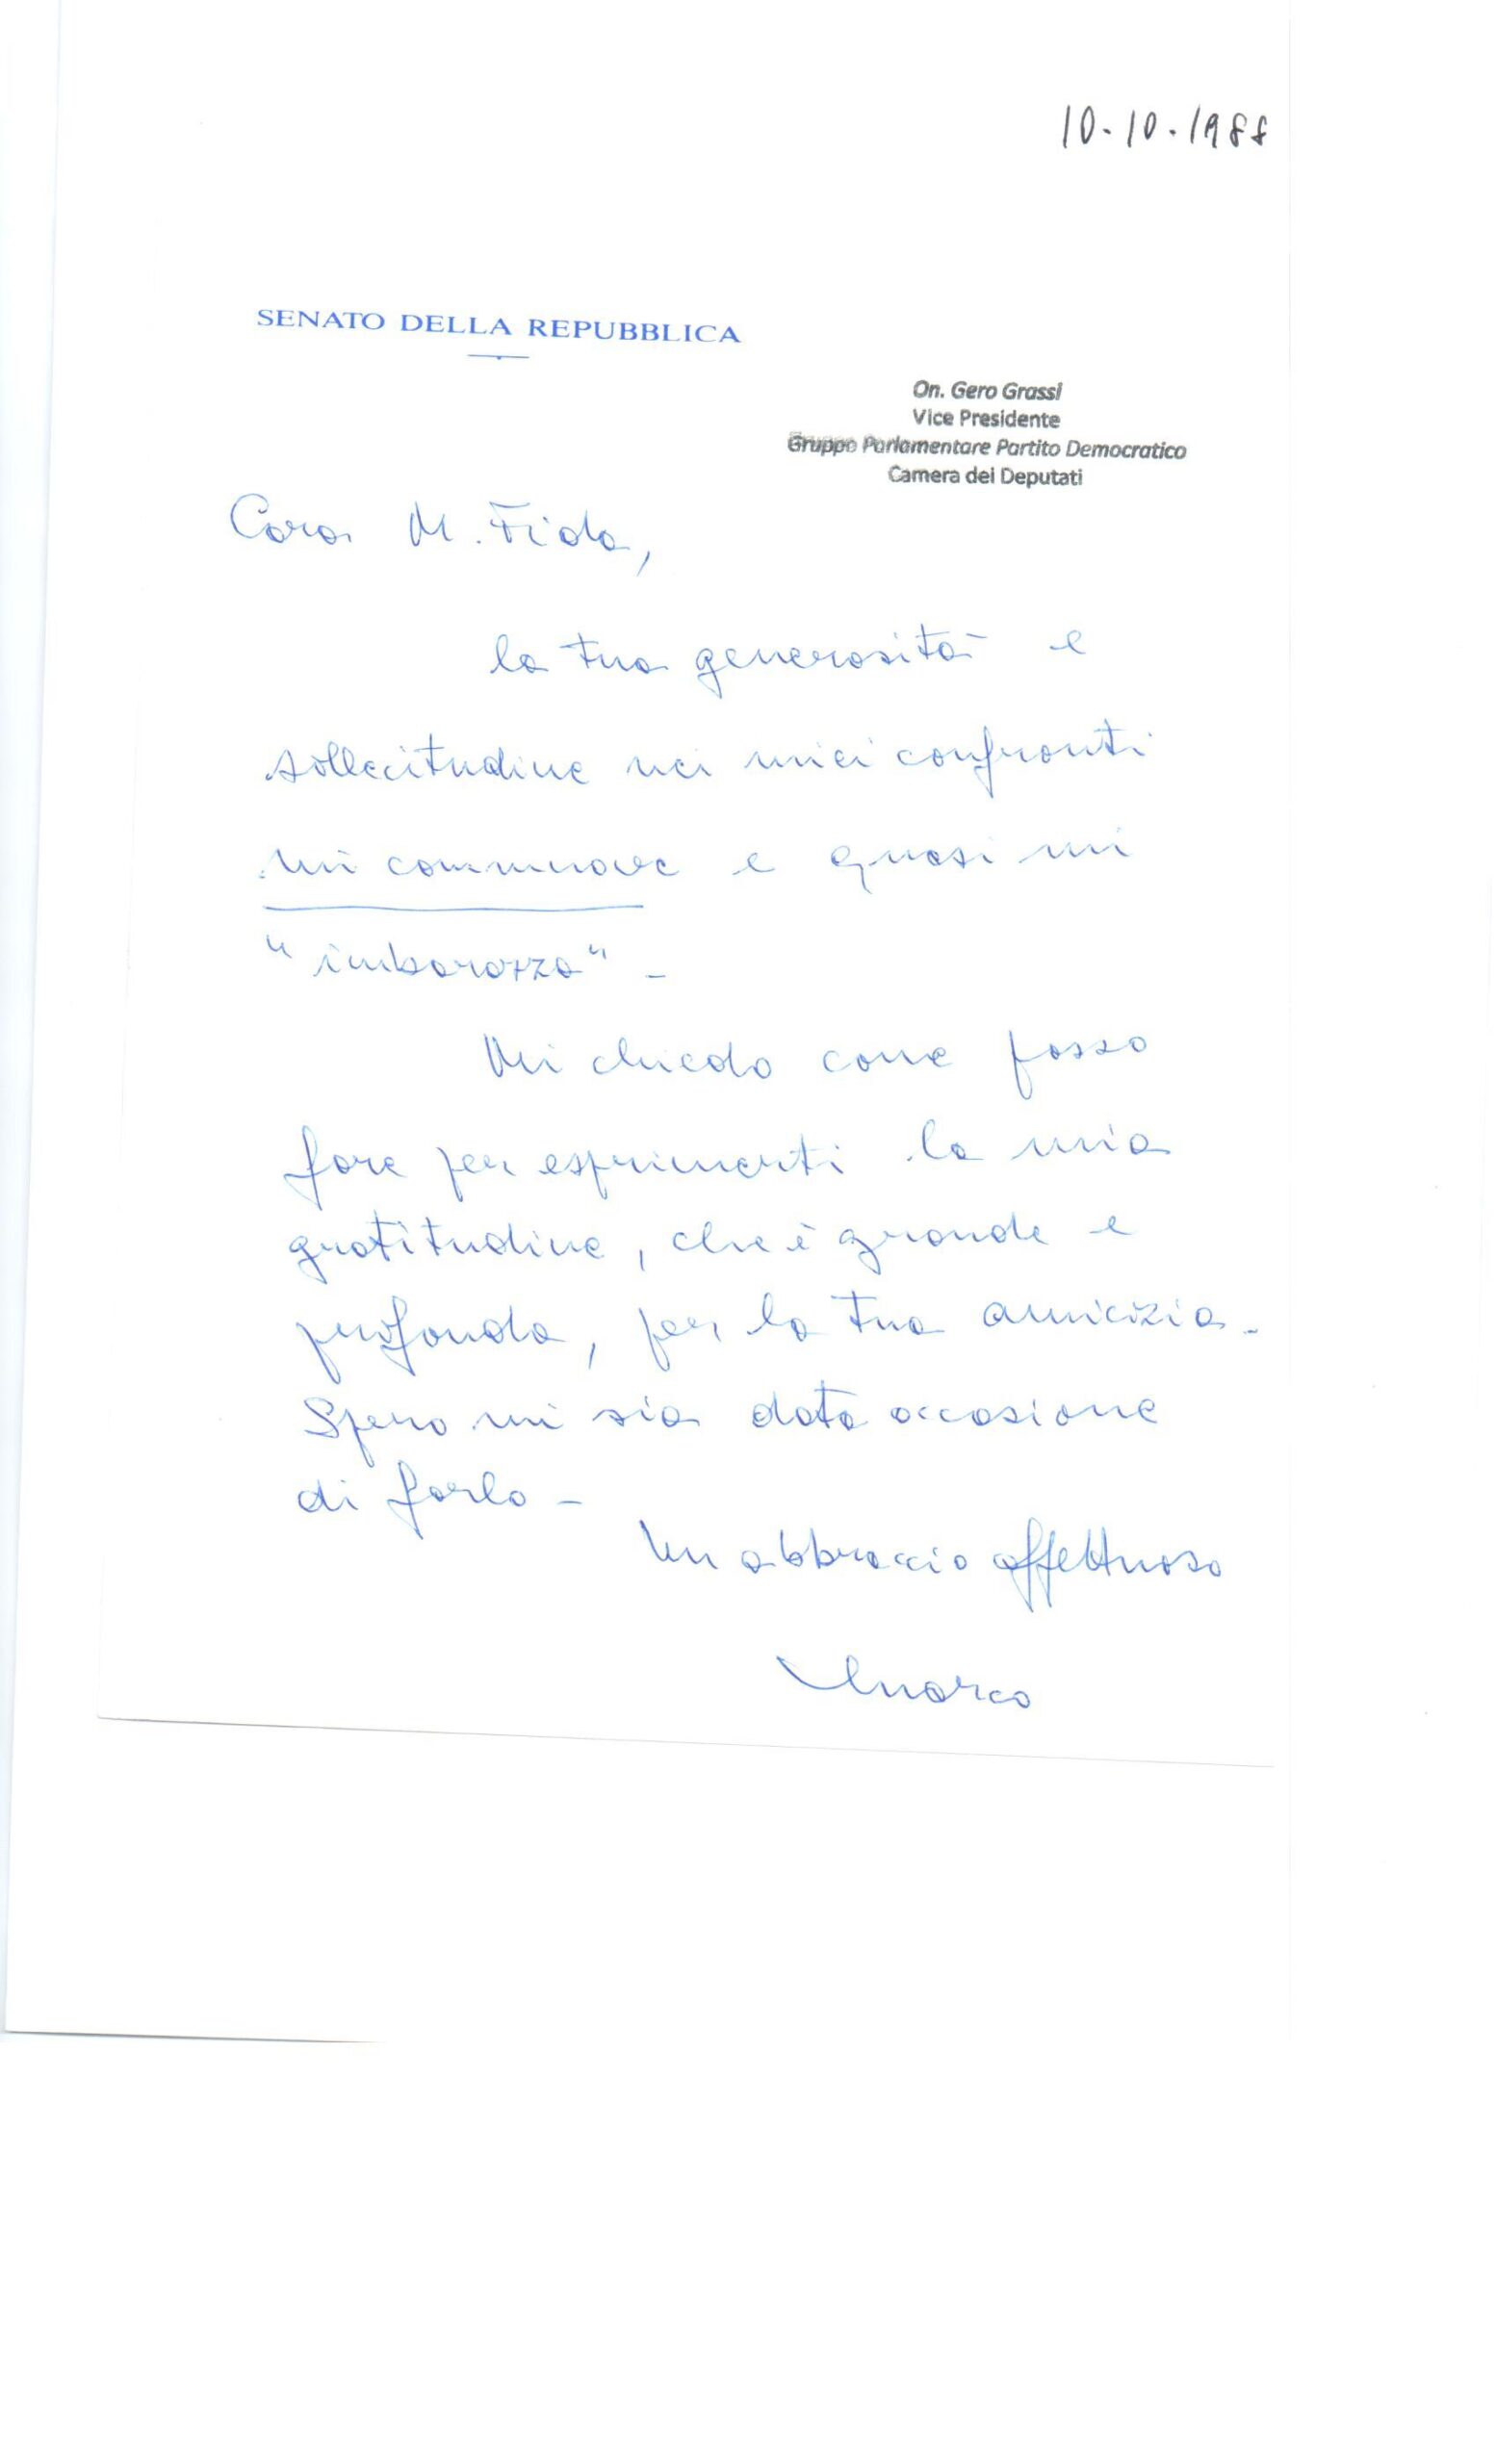 10.10.1988
SENATO DELLA REPUBBLICA
On. Gero Grassi
Vice Presidente
Gruppo Parlamentare Partito Democratico
Camera dei Deputati
Cara M. Fida,
la tua generosità e
sollecitudine nei miei confronti
mi commuove e quasi mi
"imbarazza" -
Mi chiedo come posso
fare per esprimerti la mia
gratitudine, che è grande e
profonda, per la tua amicizia.
Spero mi sia data occasione
di farlo -
Un abbraccio affettuoso
Marco